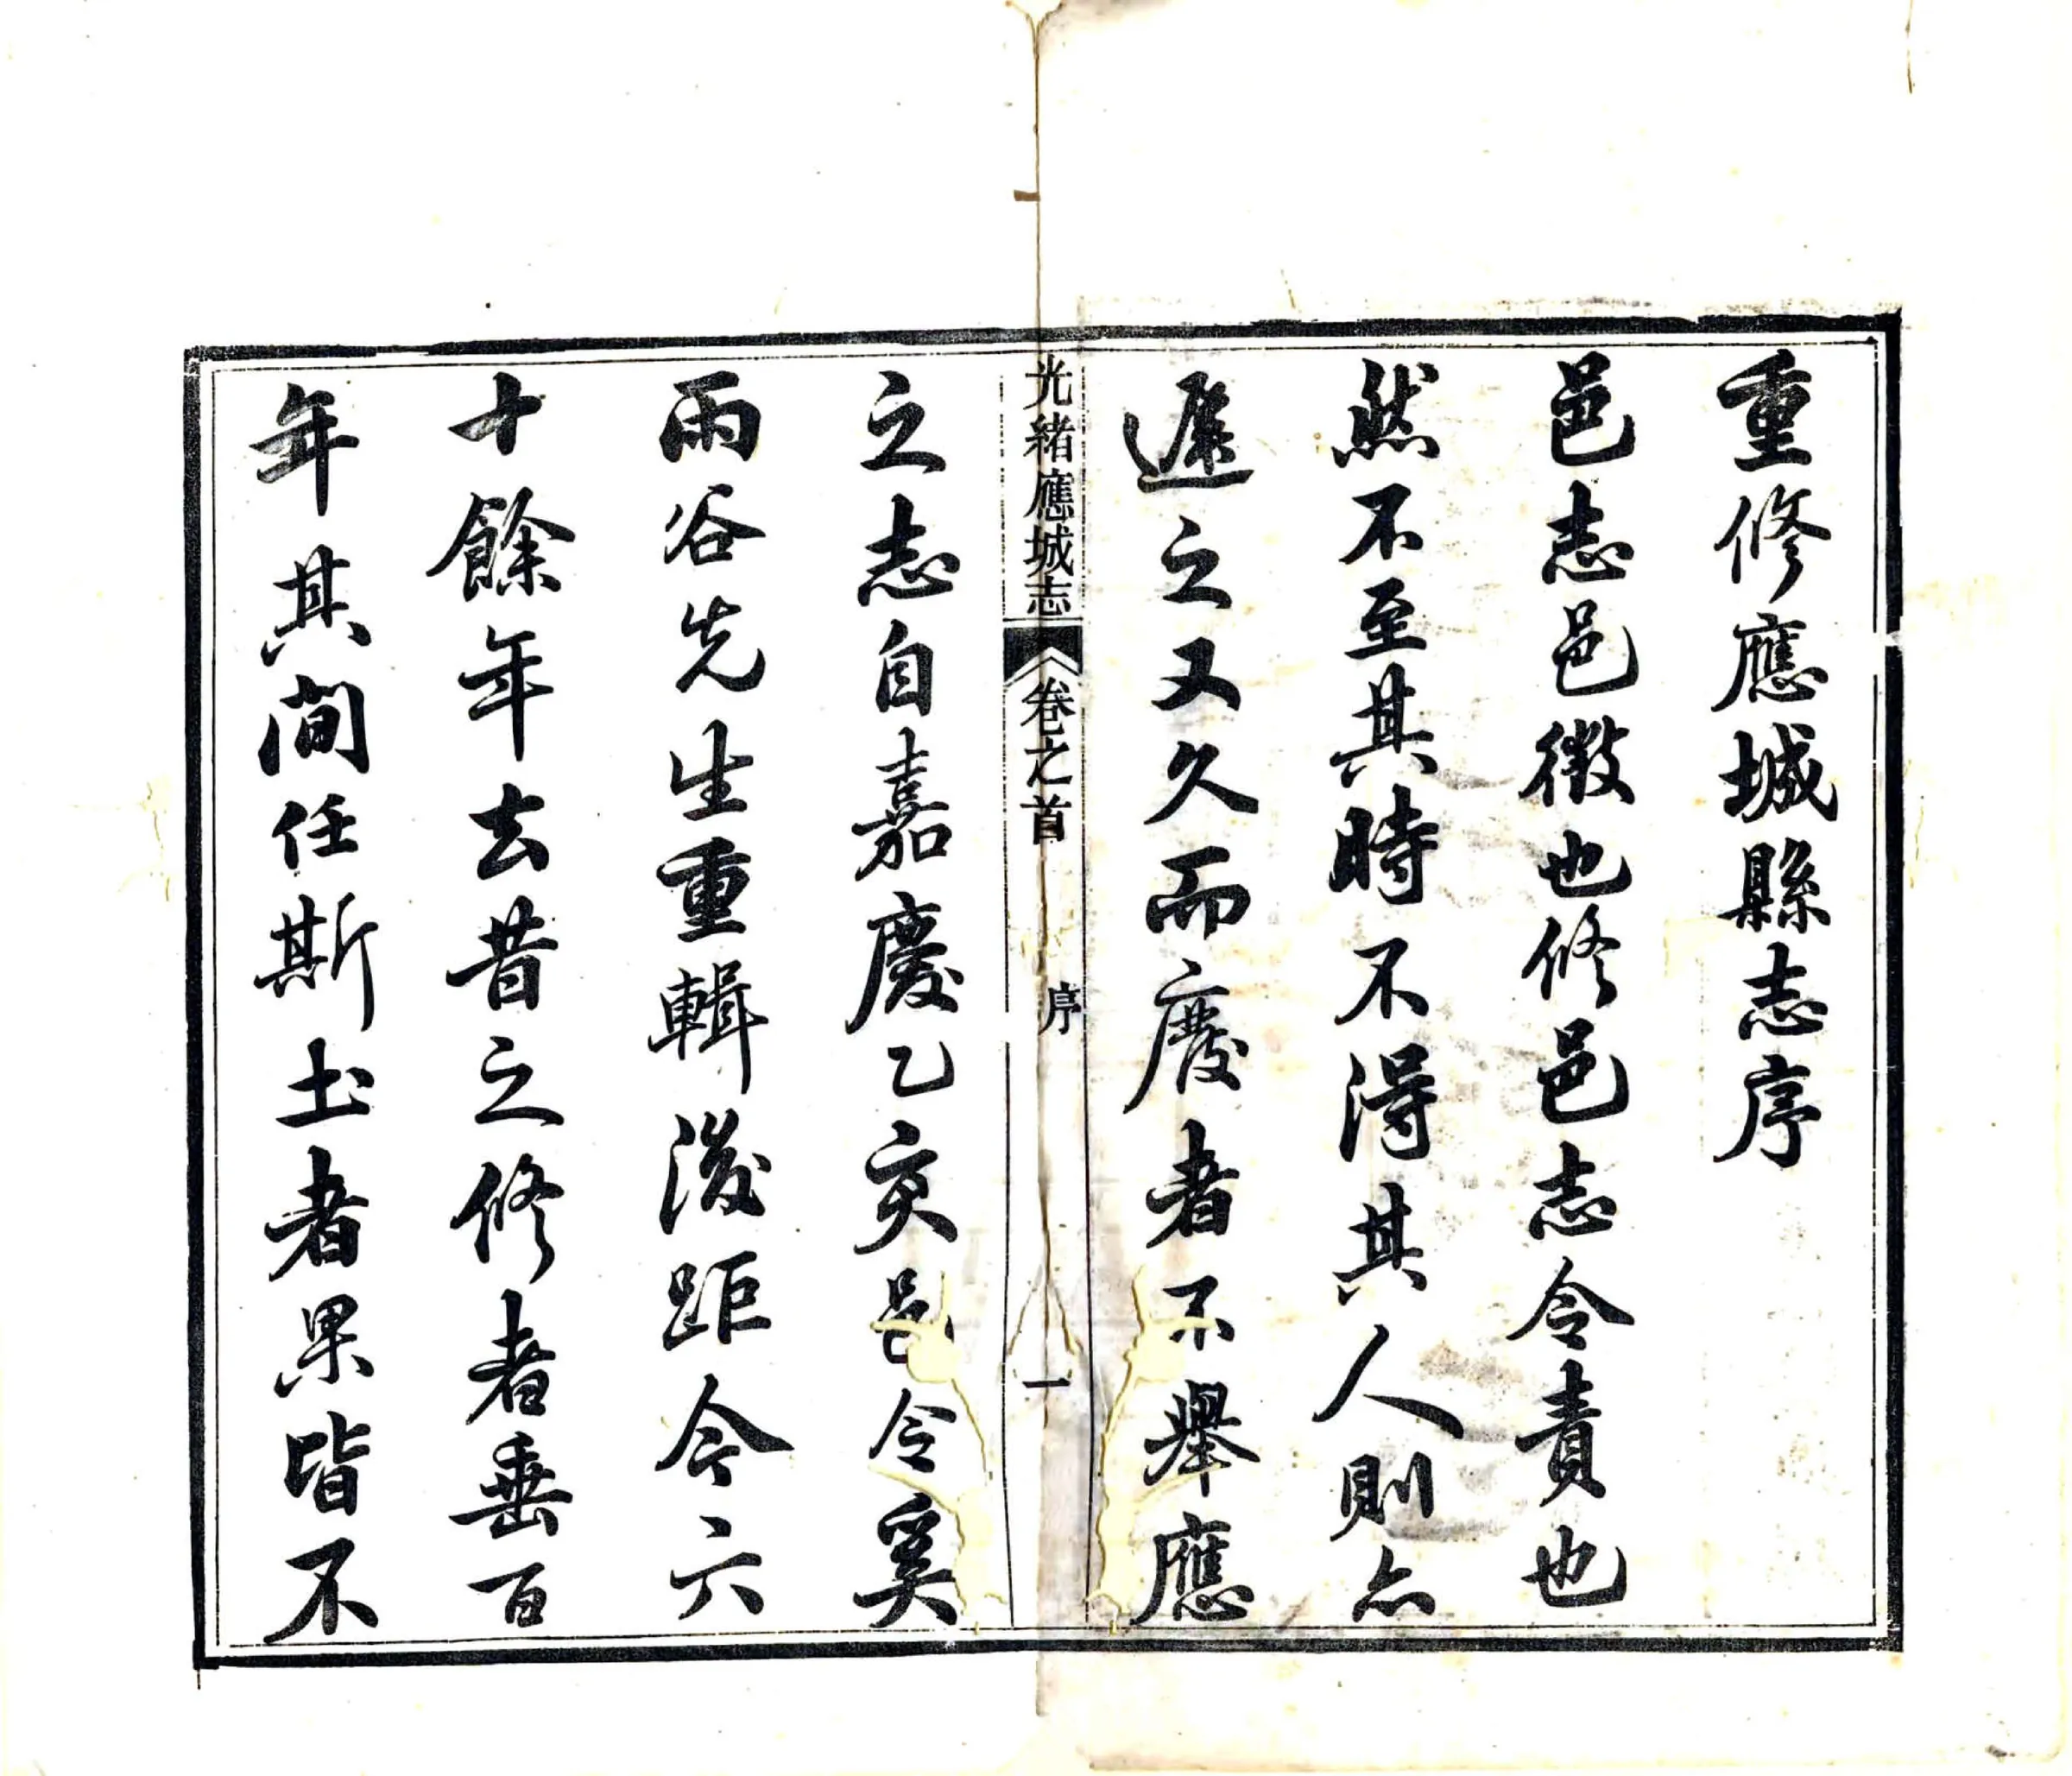 重修應城縣志序
邑志邑徵也修邑志令責也
然不至其時不得其人則亦
遲之又久而廢者不舉應
光緒應城志 卷之首 序 一
之志自嘉慶乙亥邑令奚
雨谷先生重輯後距今六
十餘年去昔之修者垂百
年其間任斯土者果皆不